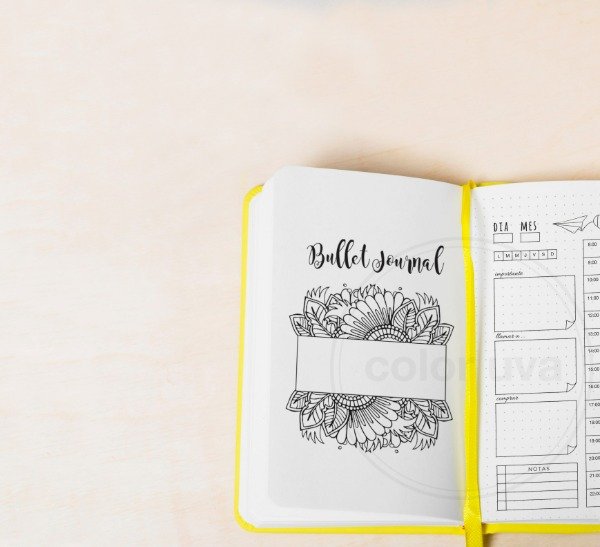 Bullet Journal
coloruva
DIA MES
L M M J V S D
importante
llamar a...
comprar
NOTAS
8:00
9:00
10:00
11:00
12:00
17:00
18:00
19:00
20:00
21:00
22:00